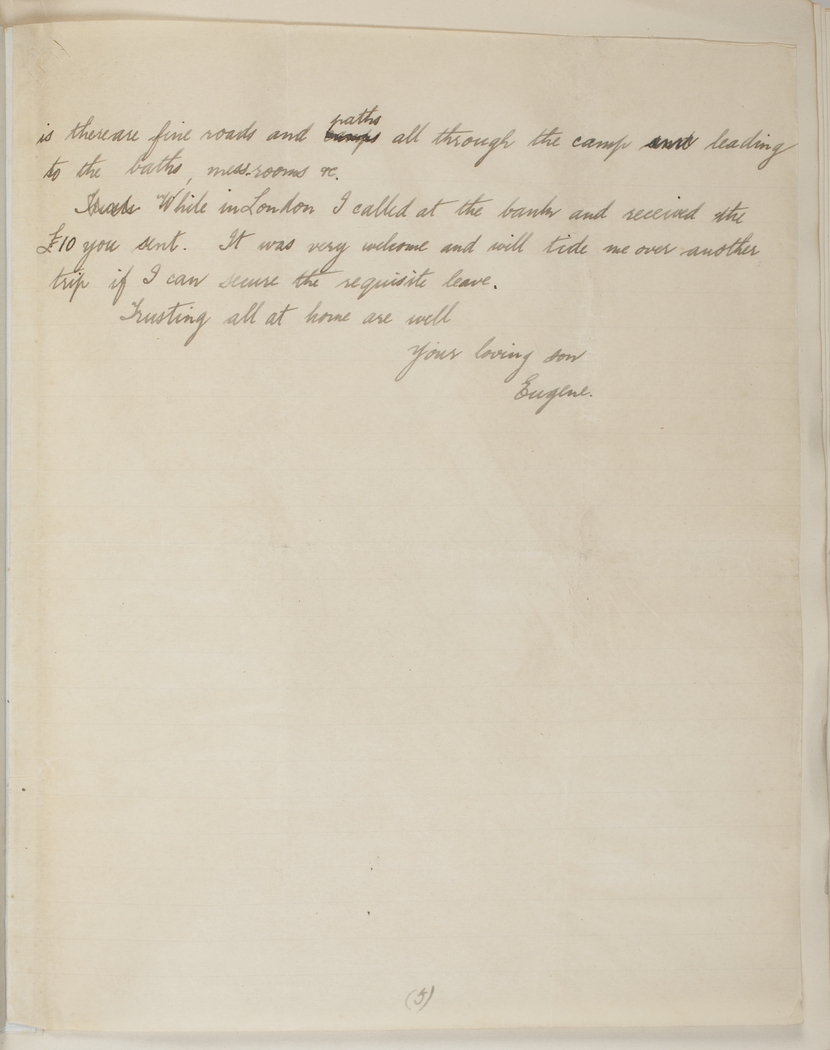 paths
is thereare fine roads and camps all through the camp and leading
to the baths, mess-rooms &c.
While in London I called at the bank and received the
£10 you sent. It was very welcome and will tide me over another
trip if I can secure the requisite leave.
Trusting all at home are well
Your loving son
Eugene.
(5)